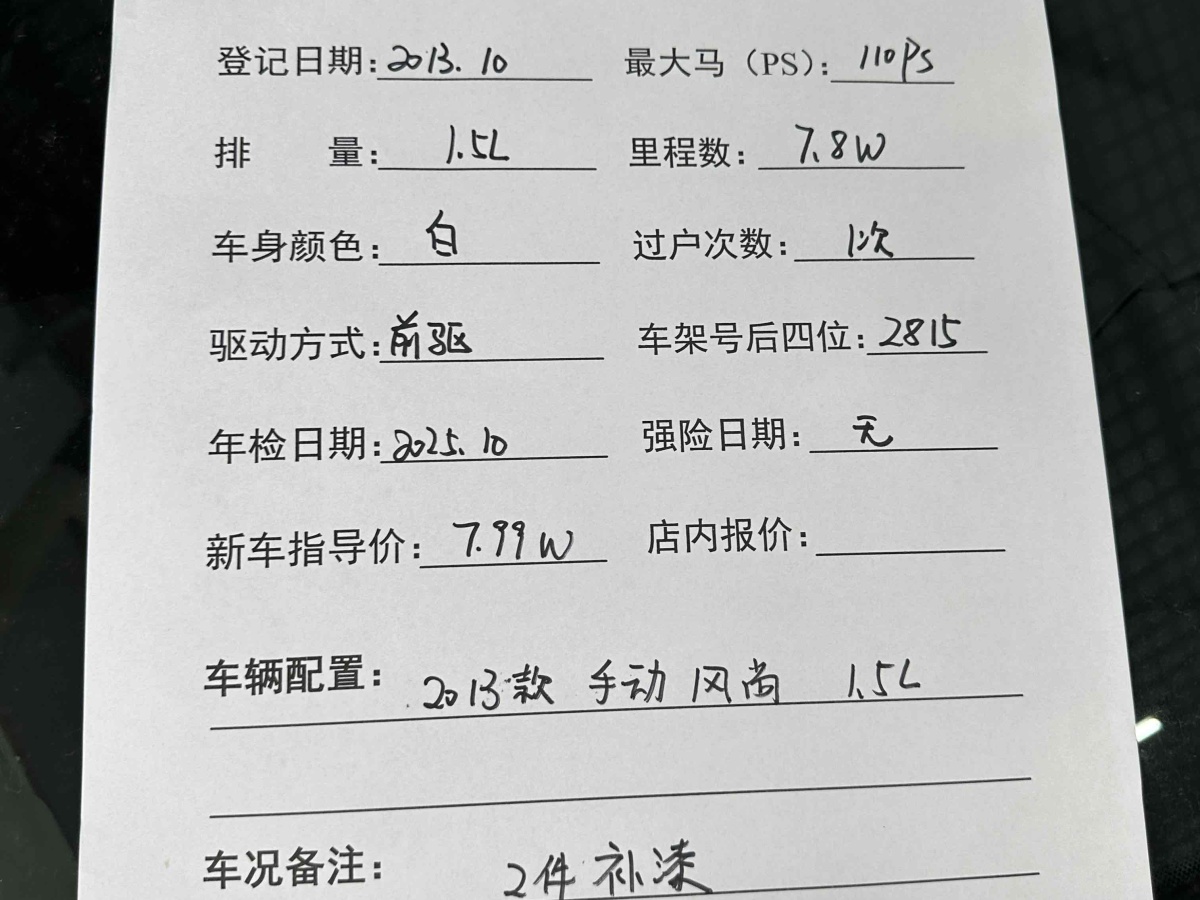 登记日期：2013.10 最大马（PS）：110PS
排 量：1.5L 里程数：7.8W
车身颜色：白 过户次数：1次
驱动方式：前驱 车架号后四位：2815
年检日期：2025.10 强险日期：无
新车指导价：7.99W 店内报价：
车辆配置：2013款 手动 风尚 1.5L
车况备注：2件补漆